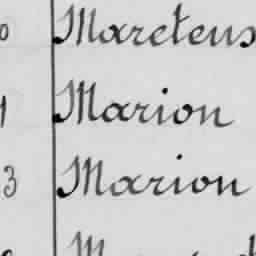 Maretens
1 Marion
3 Marion